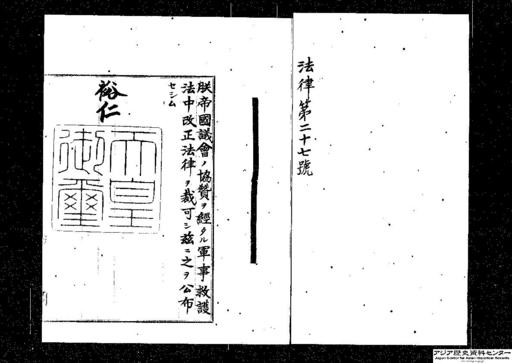 法律第二十七號
朕帝國議會ノ協贊ヲ經タル軍事救護
法中改正法律ヲ裁可シ茲ニ之ヲ公布
セシム
裕仁
天皇
御璽
アジア歴史資料センター
Japan Center for Asian Historical Records